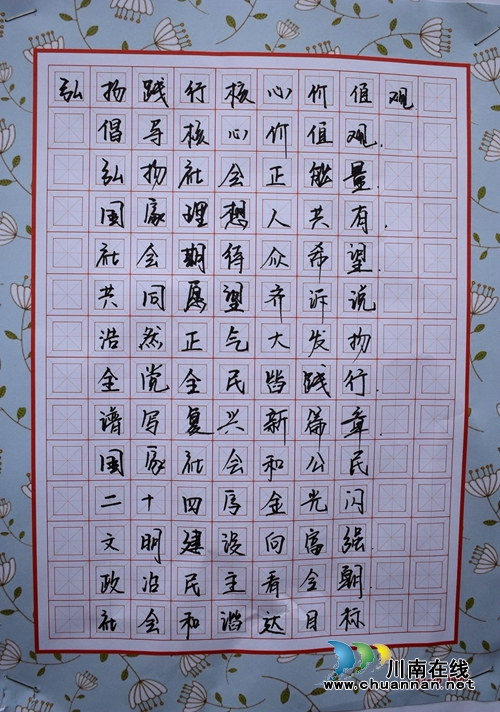 弘扬践行核心价值观
倡导核心价值观.
弘扬社会正能量.
国家理想人共有.
社会期待众希望.
共同愿望齐诉说
浩然正气大发扬
全党全民皆践行.
谱写复兴新篇章.
国家社会和公民
二十四字金光闪
文明建设向富强.
政治民主看今朝.
社会和谐达目标
川南在线
www.chuannan.net